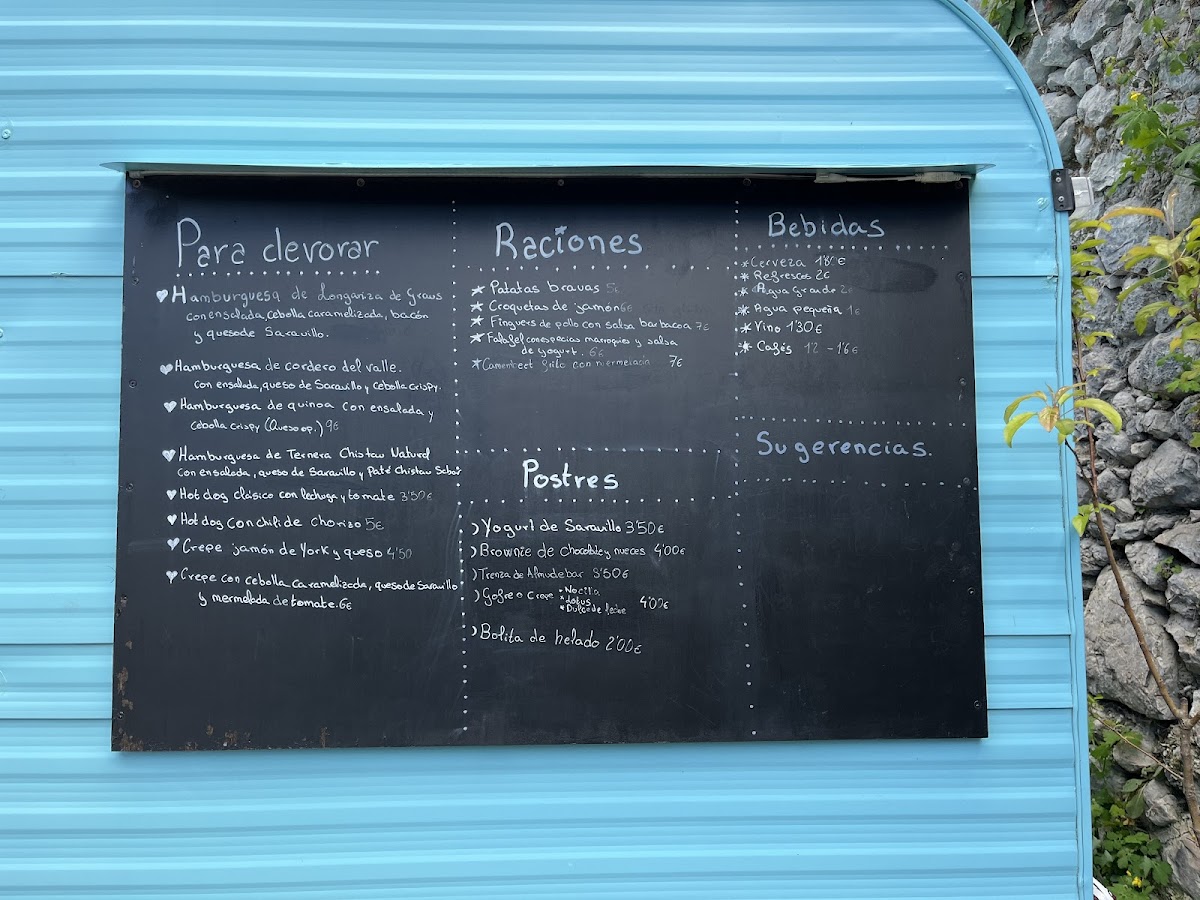 Para devorar
Hamburguesa de Longaniza de Graus
con ensalada, cebolla caramelizada, bacón
y queso de Saravillo.
Hamburguesa de cordero del valle.
con ensalada, queso de Saravillo y cebolla crispy.
Hamburguesa de quinoa con ensalada y
cebolla crispy (Queso op.) 9€
Hamburguesa de Ternera Chistau Natural
con ensalada, queso de Saravillo y Paté Chistau
Hot dog clásico con lechuga y tomate 3'50€
Hot dog con chili de chorizo 5€
Crepe jamón de York y queso 4'50
Crepe con cebolla caramelizada, queso de Saravillo
y mermelada de tomate. 6€
Raciones
Patatas bravas 5€
Croquetas de jamón 6€
Finguers de pollo con salsa barbacoa 7€
Falafel con especias marroquies y salsa
de yogurt. 6€
Camembeet frito con mermelada 7€
Postres
Yogurt de Saravillo 3'50€
Brownie de chocolate y nueces 4'00€
Trenza de Almudebar 3'50€
Gofre o Crepe • Nocilla
• Lotus
• Dulce de leche 4'00€
Bolita de helado 2'00€
Bebidas
Cerveza 1'80€
Refrescos 2€
Agua Grande 2€
Agua pequeña 1€
Vino 1'30€
Cafés 1'2 - 1'6€
Sugerencias.